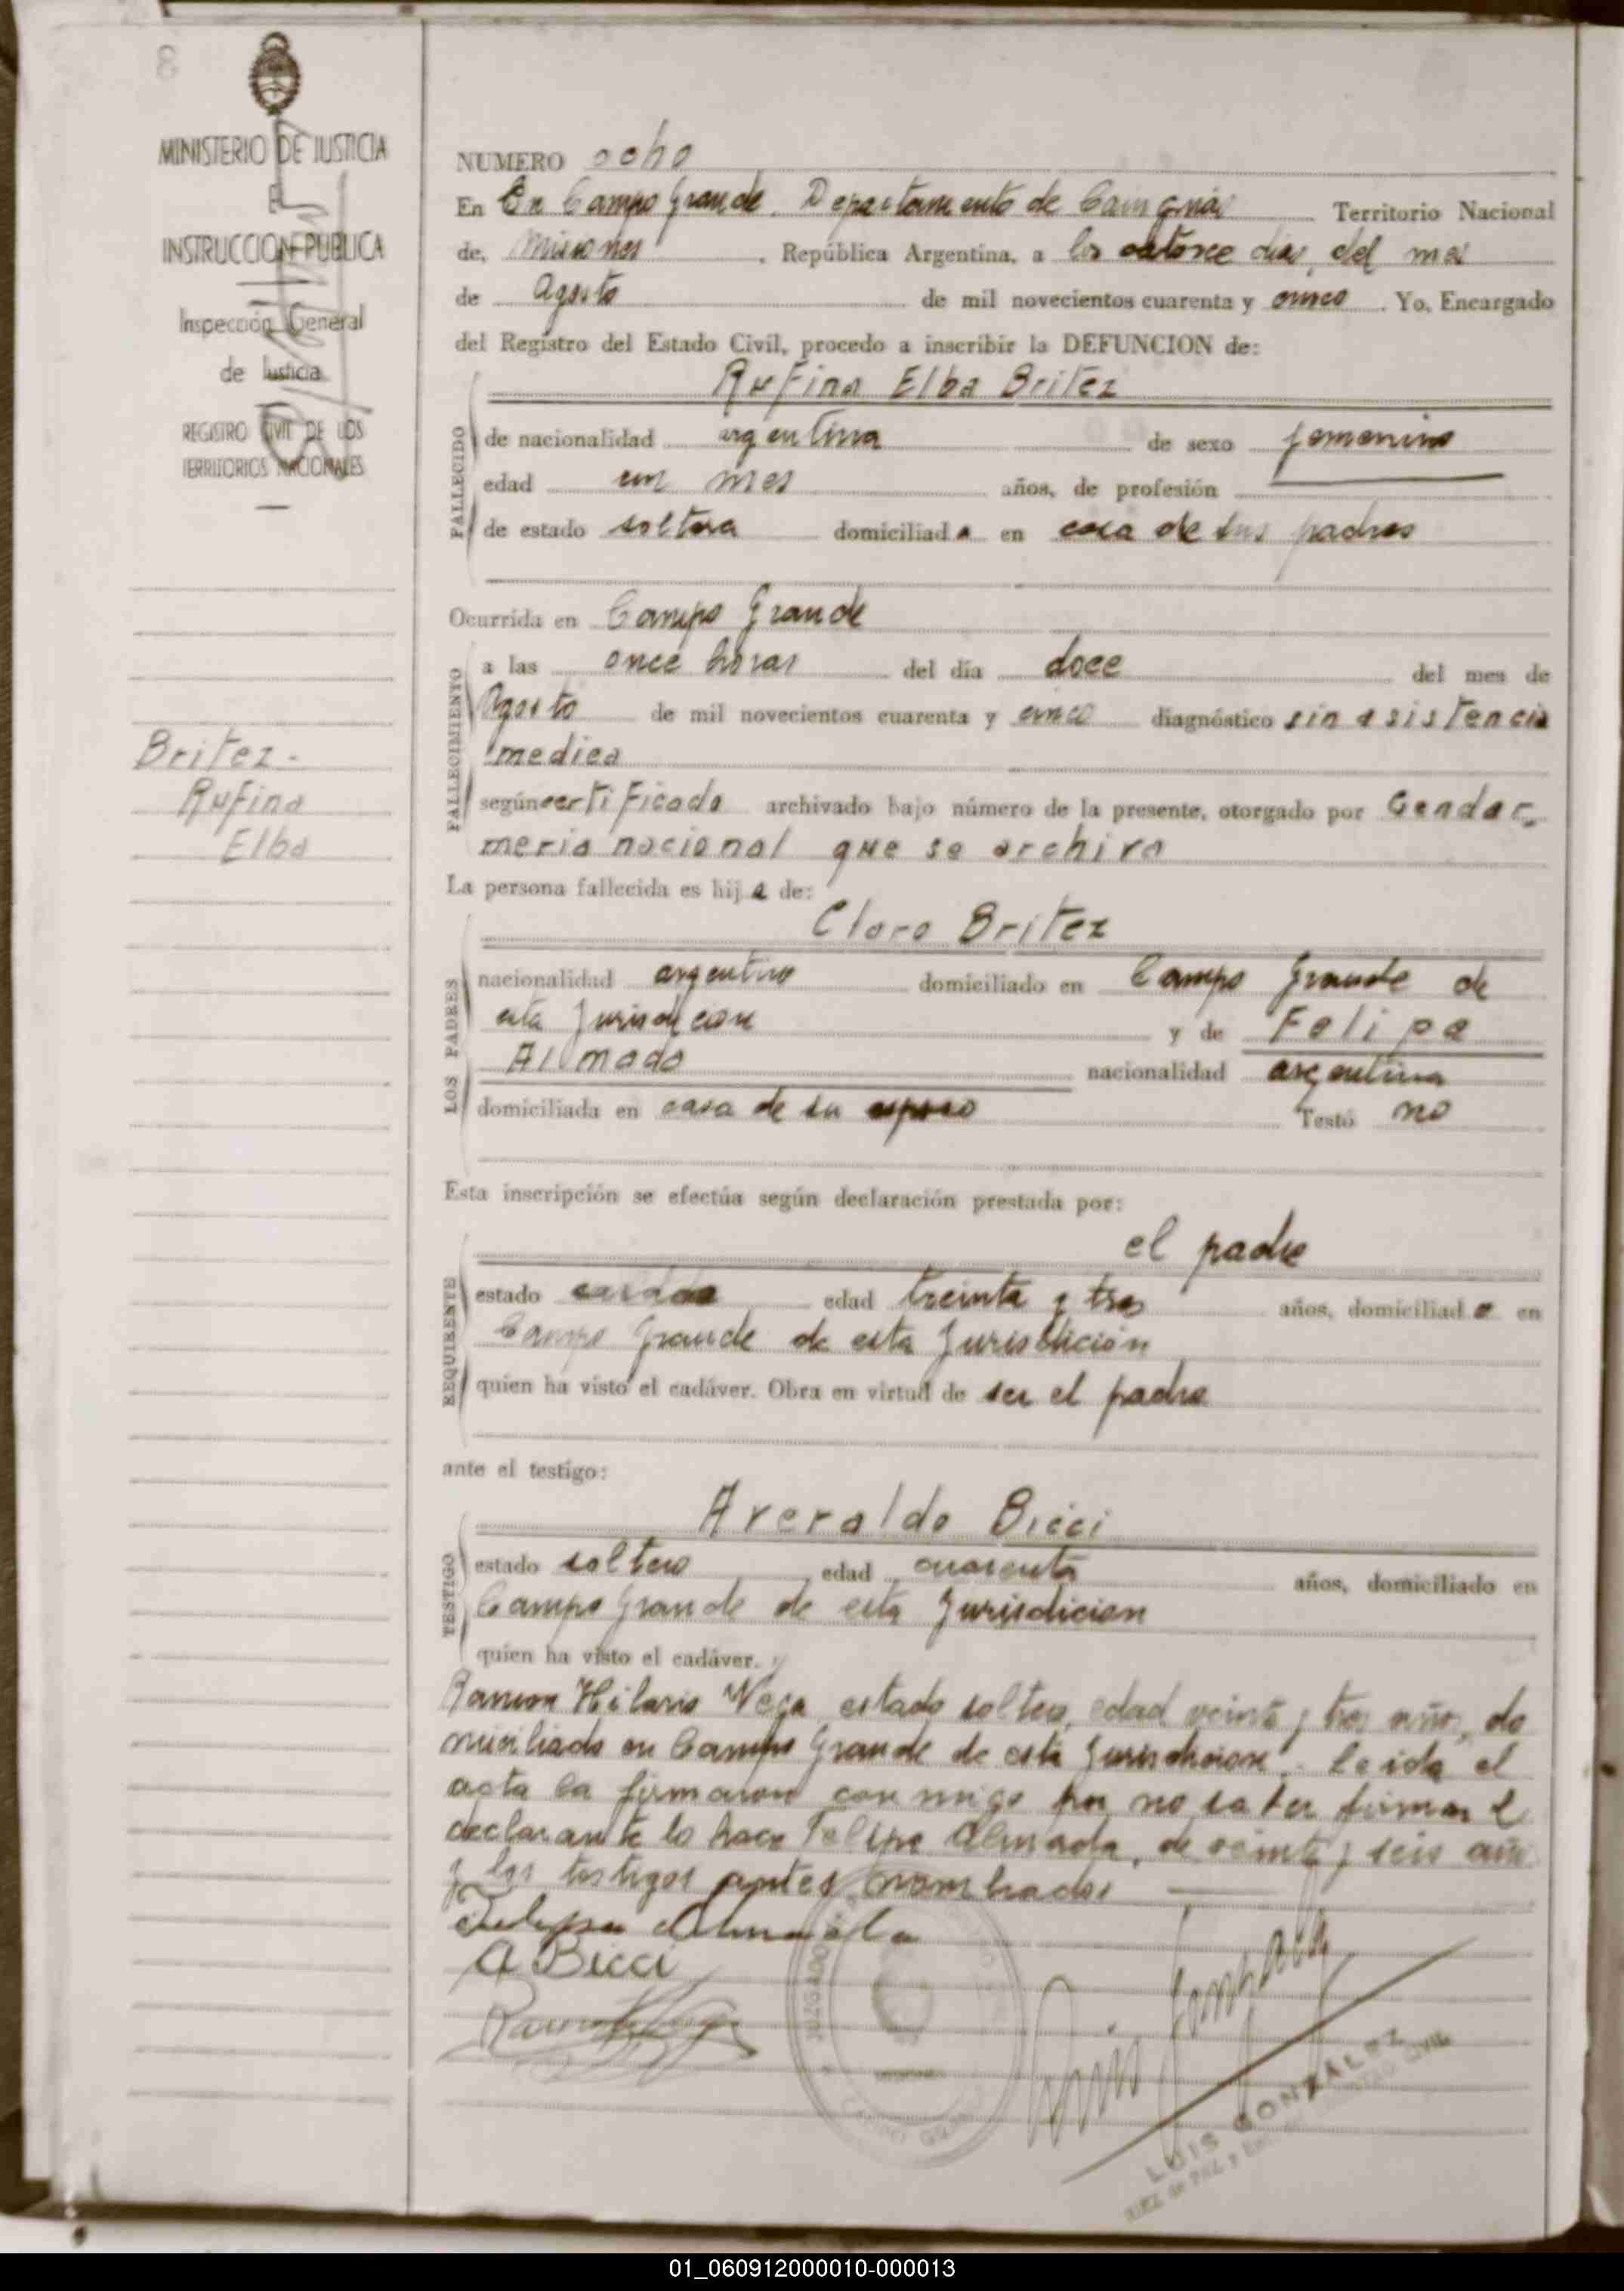 8
MINISTERIO DE JUSTICIA
E
INSTRUCCION PUBLICA
Inspección General
de Justicia
REGISTRO CIVIL DE LOS
TERRITORIOS NACIONALES
Britez-
Rufina
Elba
NUMERO ocho
En En Campo Grande. Departamento de Cainguás Territorio Nacional
de, Misiones, República Argentina, a los catorce dias, del mes
de Agosto de mil novecientos cuarenta y cinco. Yo, Encargado
del Registro del Estado Civil, procedo a inscribir la DEFUNCION de:
Rufina Elba Britez
FALLECIDO
de nacionalidad argentina de sexo femenino
edad un mes años, de profesión
de estado soltera domiciliada en casa de sus padres
Ocurrida en Campo Grande
FALLECIMIENTO
a las once horas del día doce del mes de
Agosto de mil novecientos cuarenta y cinco diagnóstico sin asistencia
medica
según certificado archivado bajo número de la presente, otorgado por Gendar
meria nacional que se archiva
La persona fallecida es hija de:
Claro Britez
LOS PADRES
nacionalidad argentino domiciliado en Campo Grande de
esta Jurisdicion y de Felipa
Almada nacionalidad argentina
domiciliada en casa de su esposo Testó no
Esta inscripción se efectúa según declaración prestada por:
el padre
REQUIRENTE
estado casado edad treinta y tres años, domiciliado en
Campo Grande de esta Jurisdición
quien ha visto el cadáver. Obra en virtud de ser el padre
ante el testigo:
Averaldo Bicci
TESTIGO
estado soltero edad cuarenta años, domiciliado en
Campo Grande de esta Jurisdicion
quien ha visto el cadáver. y
Ramon Hilario Vega estado soltero, edad veinte y tres años, do
miciliado en Campo Grande de esta Jurisdicion. Leida el
acta la firmaron conmigo por no saber firmar el
declarante lo hace Felipa Almada, de veinte y seis años
y los testigos antes nombrados
Felipa Almada
A Bicci
JUZGADO
CAMPO GRANDE
Luis Gonzalez
LUIS GONZALEZ
JUEZ DE PAZ y
01_060912000010-000013